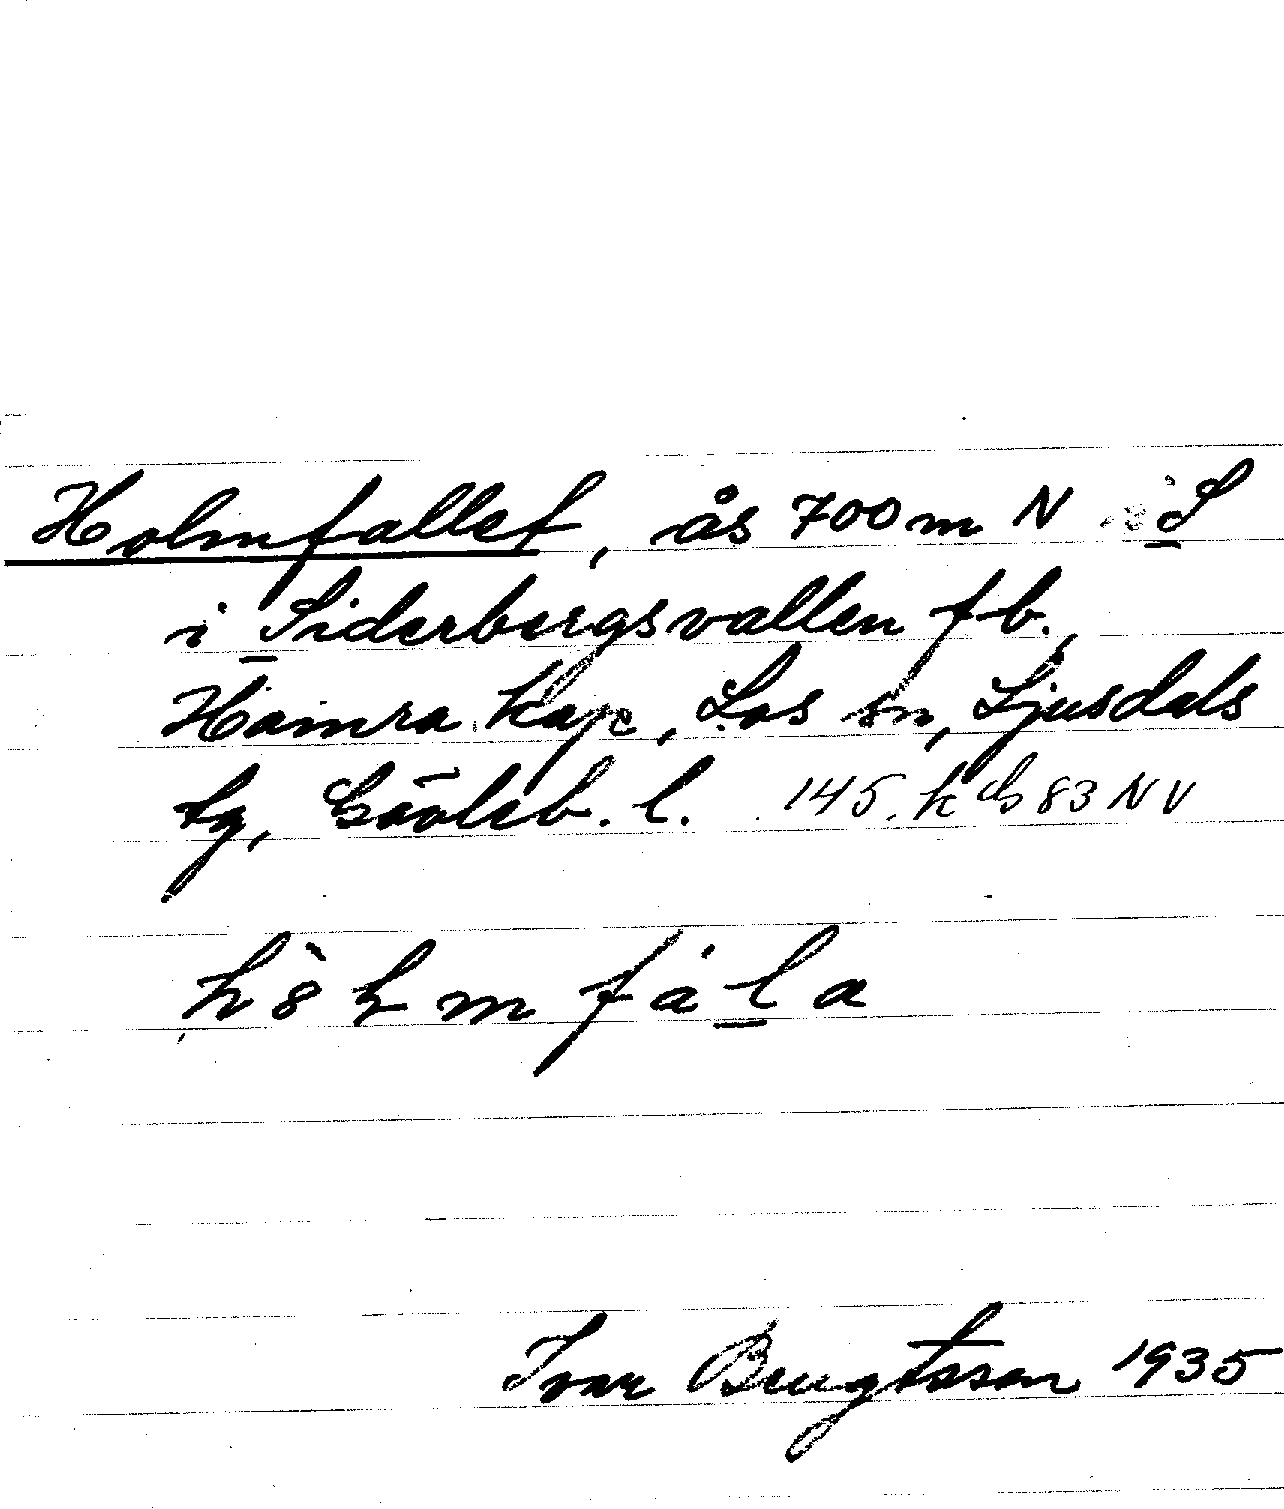 Holmfallet, ås 700 m N i S
i Siderbergsvallen fb.,
Hamra kap, Los sn, Ljusdals
tg, Gävleb. l. 145. k. 83 NV
fàla
Ivar Bengtsson 1935